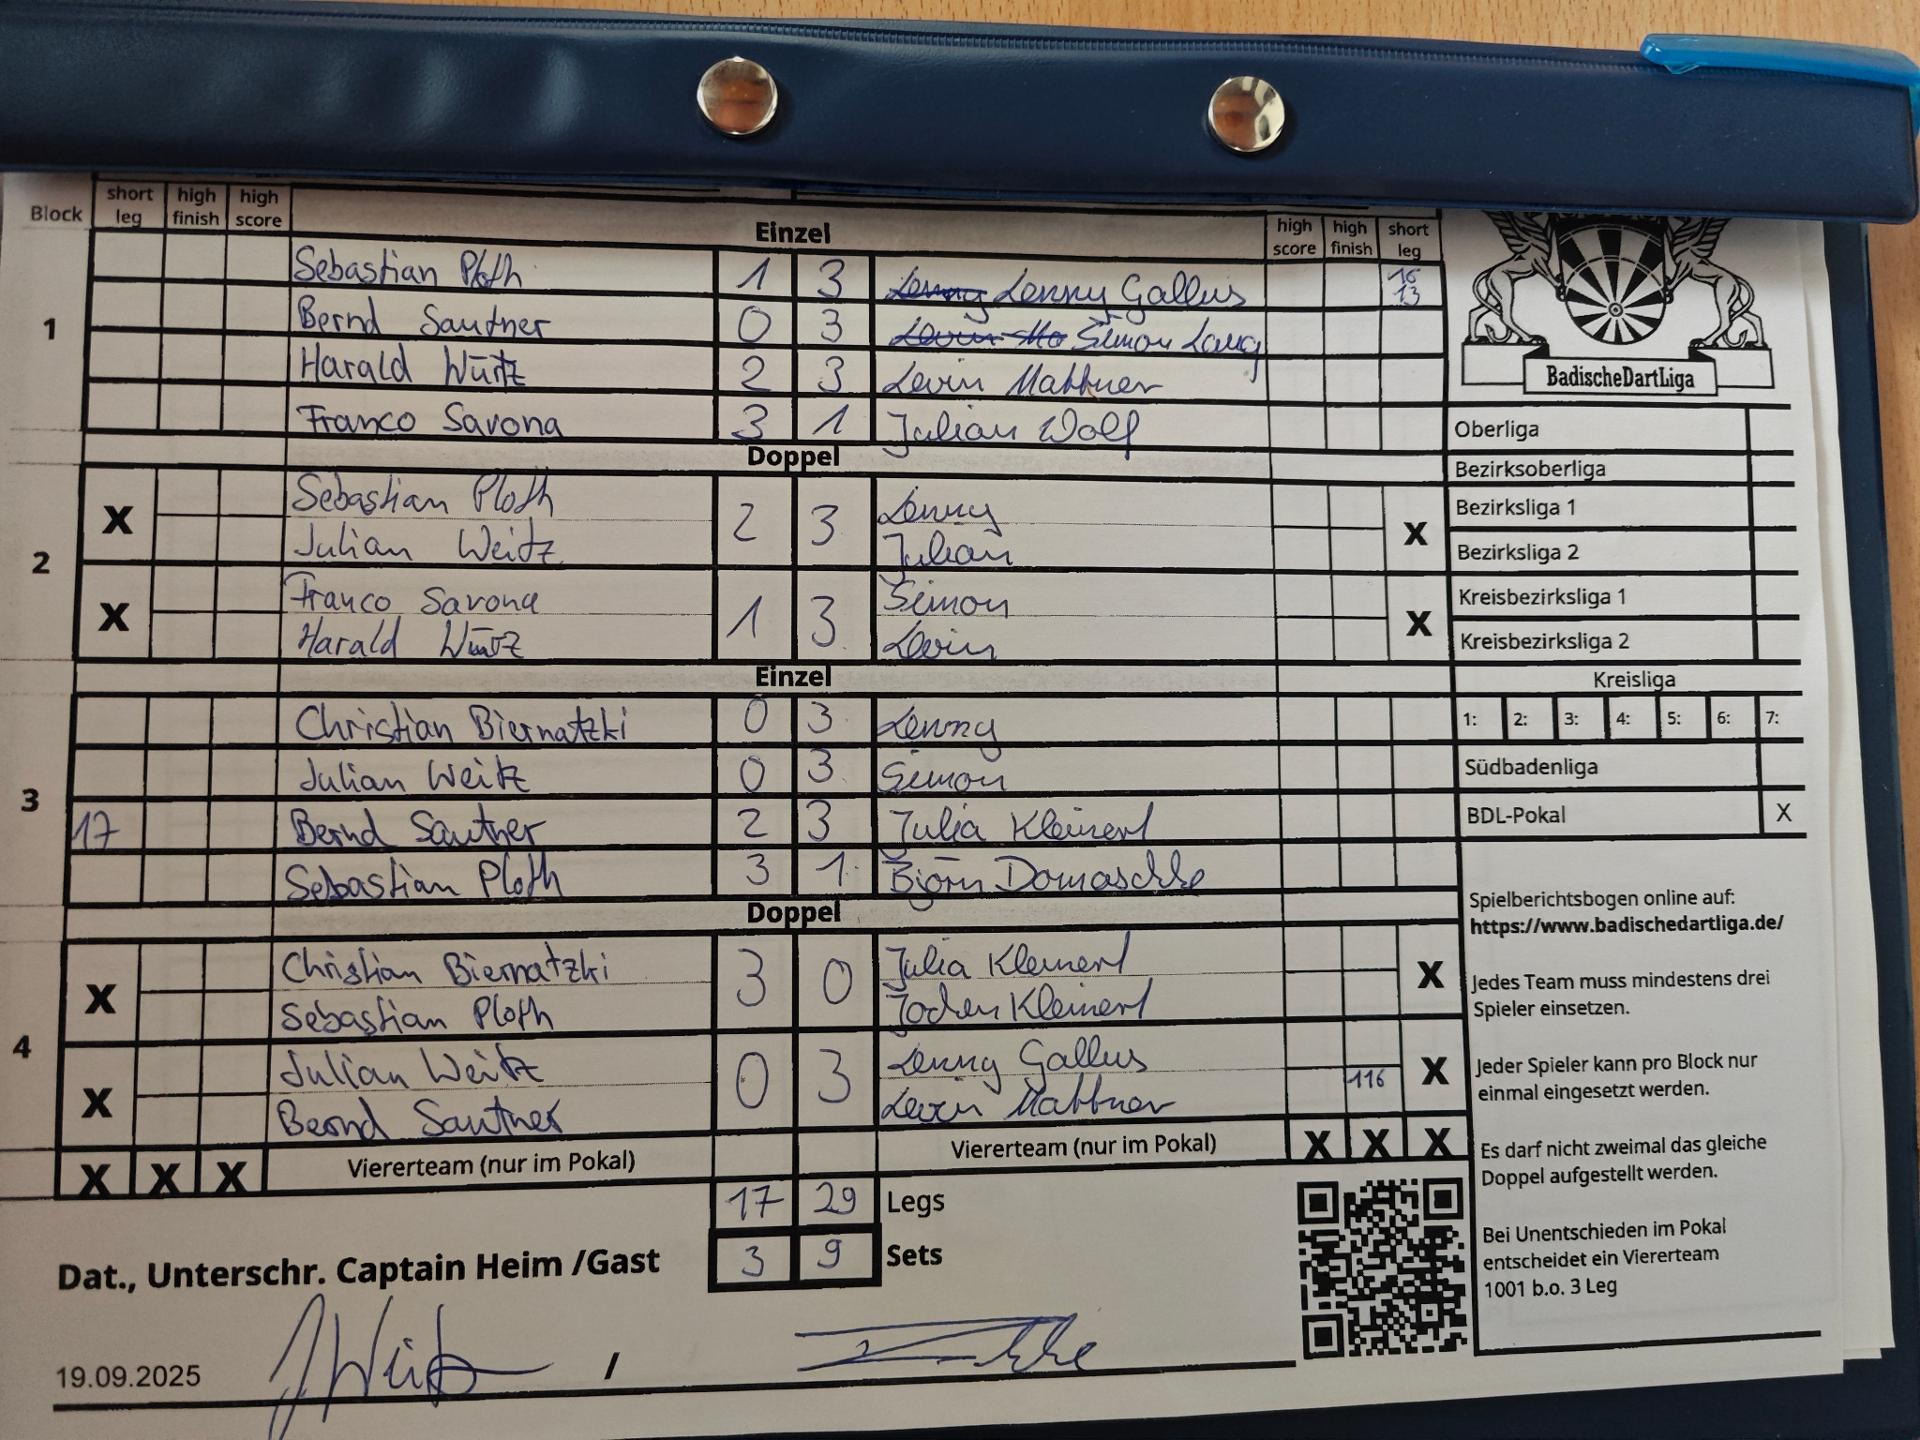 Block short leg high finish high score Einzel high score high finish short leg
1
Sebastian Ploth 1 3 Lenny Gallus 16 13
Bernd Sautner 0 3 Simon Lang
Harald Würtz 2 3 Levin Mattner
Franco Savona 3 1 Julian Wolf
Doppel
2
X Sebastian Ploth 2 3 Lenny X
Julian Weitz Julian
X Franco Savona 1 3 Simon X
Harald Würtz Levin
Einzel
3
Christian Biernatzki 0 3 Lenny
Julian Weitz 0 3 Simon
17 Bernd Sautner 2 3 Julia Kleinert
Sebastian Ploth 3 1 Björn Domaschke
Doppel
4
X Christian Biernatzki 3 0 Julia Kleinert X
Sebastian Ploth Jochen Kleinert
X Julian Weitz 0 3 Lenny Gallus X
Bernd Sautner Levin Mattner 116
X X X Viererteam (nur im Pokal) Viererteam (nur im Pokal) X X X
17 29 Legs
3 9 Sets
Dat., Unterschr. Captain Heim /Gast
19.09.2025 /
BadischeDartLiga
Oberliga
Bezirksoberliga
Bezirksliga 1
Bezirksliga 2
Kreisbezirksliga 1
Kreisbezirksliga 2
Kreisliga
1: 2: 3: 4: 5: 6: 7:
Südbadenliga
BDL-Pokal X
Spielberichtsbogen online auf:
https://www.badischedartliga.de/
Jedes Team muss mindestens drei
Spieler einsetzen.
Jeder Spieler kann pro Block nur
einmal eingesetzt werden.
Es darf nicht zweimal das gleiche
Doppel aufgestellt werden.
Bei Unentschieden im Pokal
entscheidet ein Viererteam
1001 b.o. 3 Leg